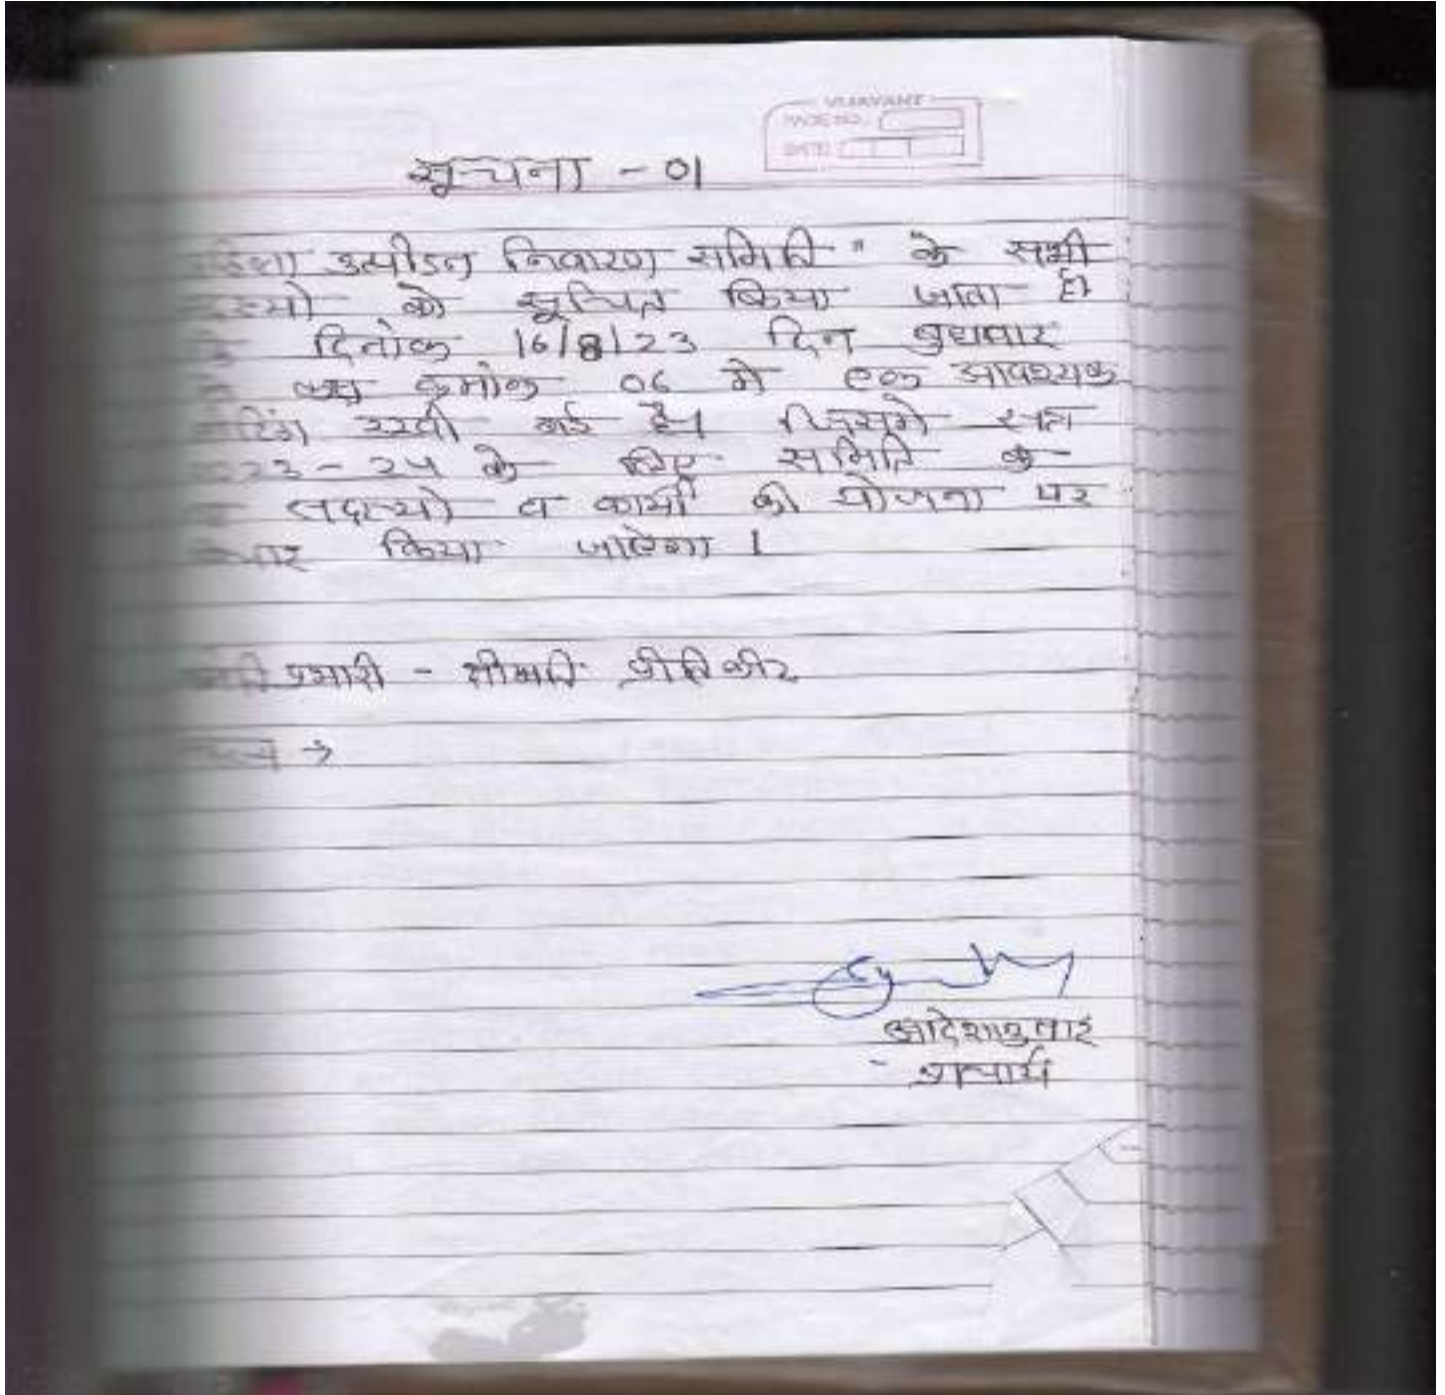 VIJAYANT
PAGE NO.:
DATE:
सूचना - 01
उत्पीडन निवारण समिति " के सभी
को सूचित किया जाता है।
दिनांक 16/8/23 दिन बुधवार
कक्ष क्रमांक 06 मे एक आवश्यक
रखी गई है। जिसमे सत्र
2023-24 के लिए समिति के
व कार्यो की योजना पर
किया जाऐगा ।
प्रभारी - श्रीमति प्रीति कौर
→
आदेशानुसार
प्राचार्य